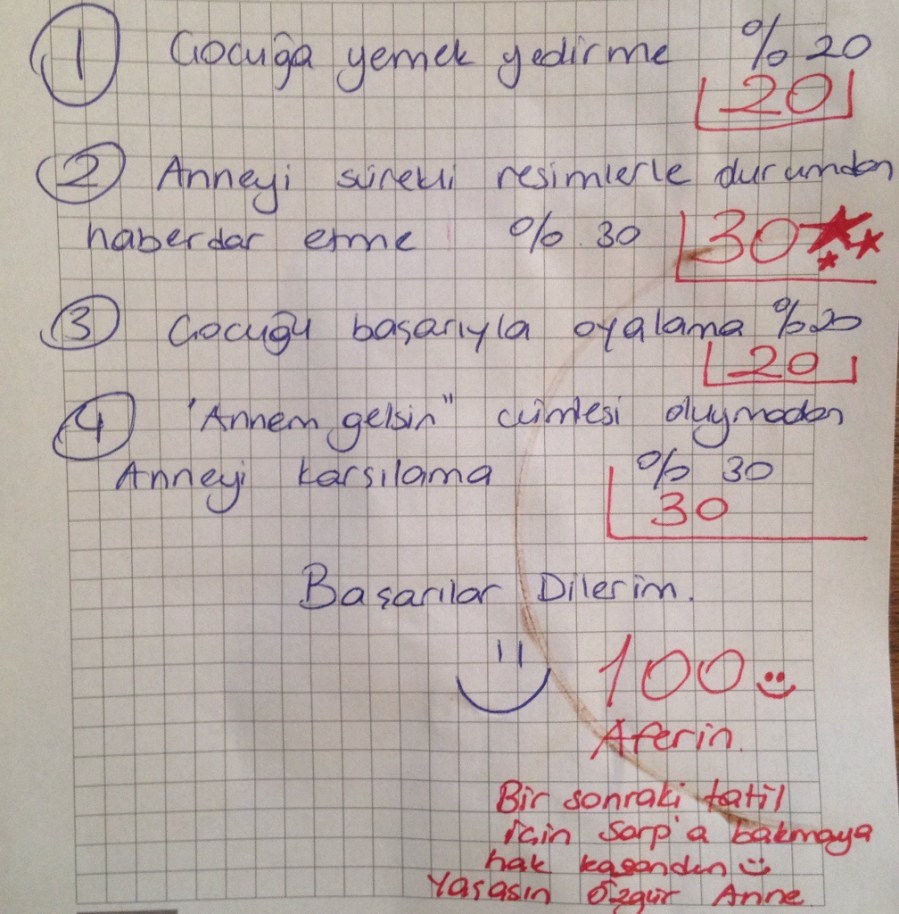 1 Çocuğa yemek yedirme %20
20
2 Anneyi sürekli resimlerle durumdan
haberdar etme %30 30
3 Çocuğu başarıyla oyalama %20
20
4 "Annem gelsin" cümlesi duymadan
Anneyi karşılama %30
30
Başarılar Dilerim.
100
Aferin.
Bir sonraki tatil
için Sarp'a bakmaya
hak kazandın
Yaşasın Özgür Anne